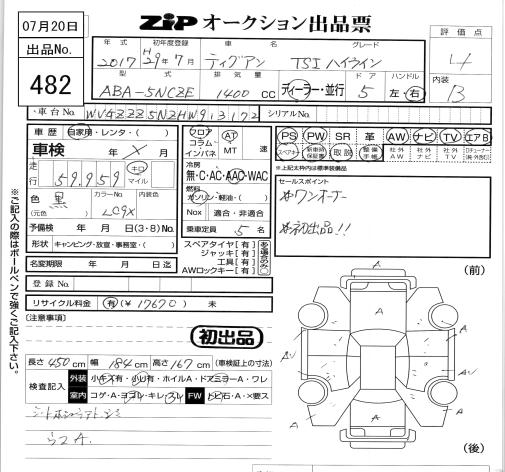 07月20日
ZiP オークション出品票
出品No.
482
年式 初年度登録 車名 グレード
2017 H29年7月 ティグアン TSI ハイライン
評価点
4
型式 排気量 ドア ハンドル
ABA-5NCZE 1400 CC ディーラー・並行 5 左・右
内装
B
車台No. シリアルNo.
車歴 自家用・レンタ・( )
車検 年 X 月
走行 59,959 キロ マイル
色 黒 カラーNo. 内装色
(元色) LC9X
予備検 年 月 日(3・8)No.
形状 キャンピング・放宣・事務室・( )
名変期限 年 月 日迄
フロア コラム インパネ AT MT 速
冷房
無・C・AC・AAC・WAC
燃料
ガソリン・軽油・( )
Nox 適合・非適合
乗車定員 5 名
スペアタイヤ[有]
ジャッキ[有]
工具[有]
AWロックキー[有]
PS PW SR 革 AW ナビ TV エアB
スペアキー 新車時保証書 取説 整備手帳 社外AW 社外ナビ 社外TV
※上記太枠内は標準装備品
セールスポイント
※ワンオーナー
※初出品!!
登録No.
リサイクル料金 有(¥ 17670) 未
(注意事項)
初出品
長さ 450 cm 幅 184 cm 高さ 167 cm (車検証上の寸法)
検査記入 外装 小キズ有・小凹有・ホイルA・ドアミラーA・ワレ
室内 コゲ・A・ヨゴレ・キレ・スレ FW トビ石・A・×要ス
ウスA.
(前)
A
A
A
A
A
A
(後)
※ご記入の際はボールペンで強くご記入下さい。